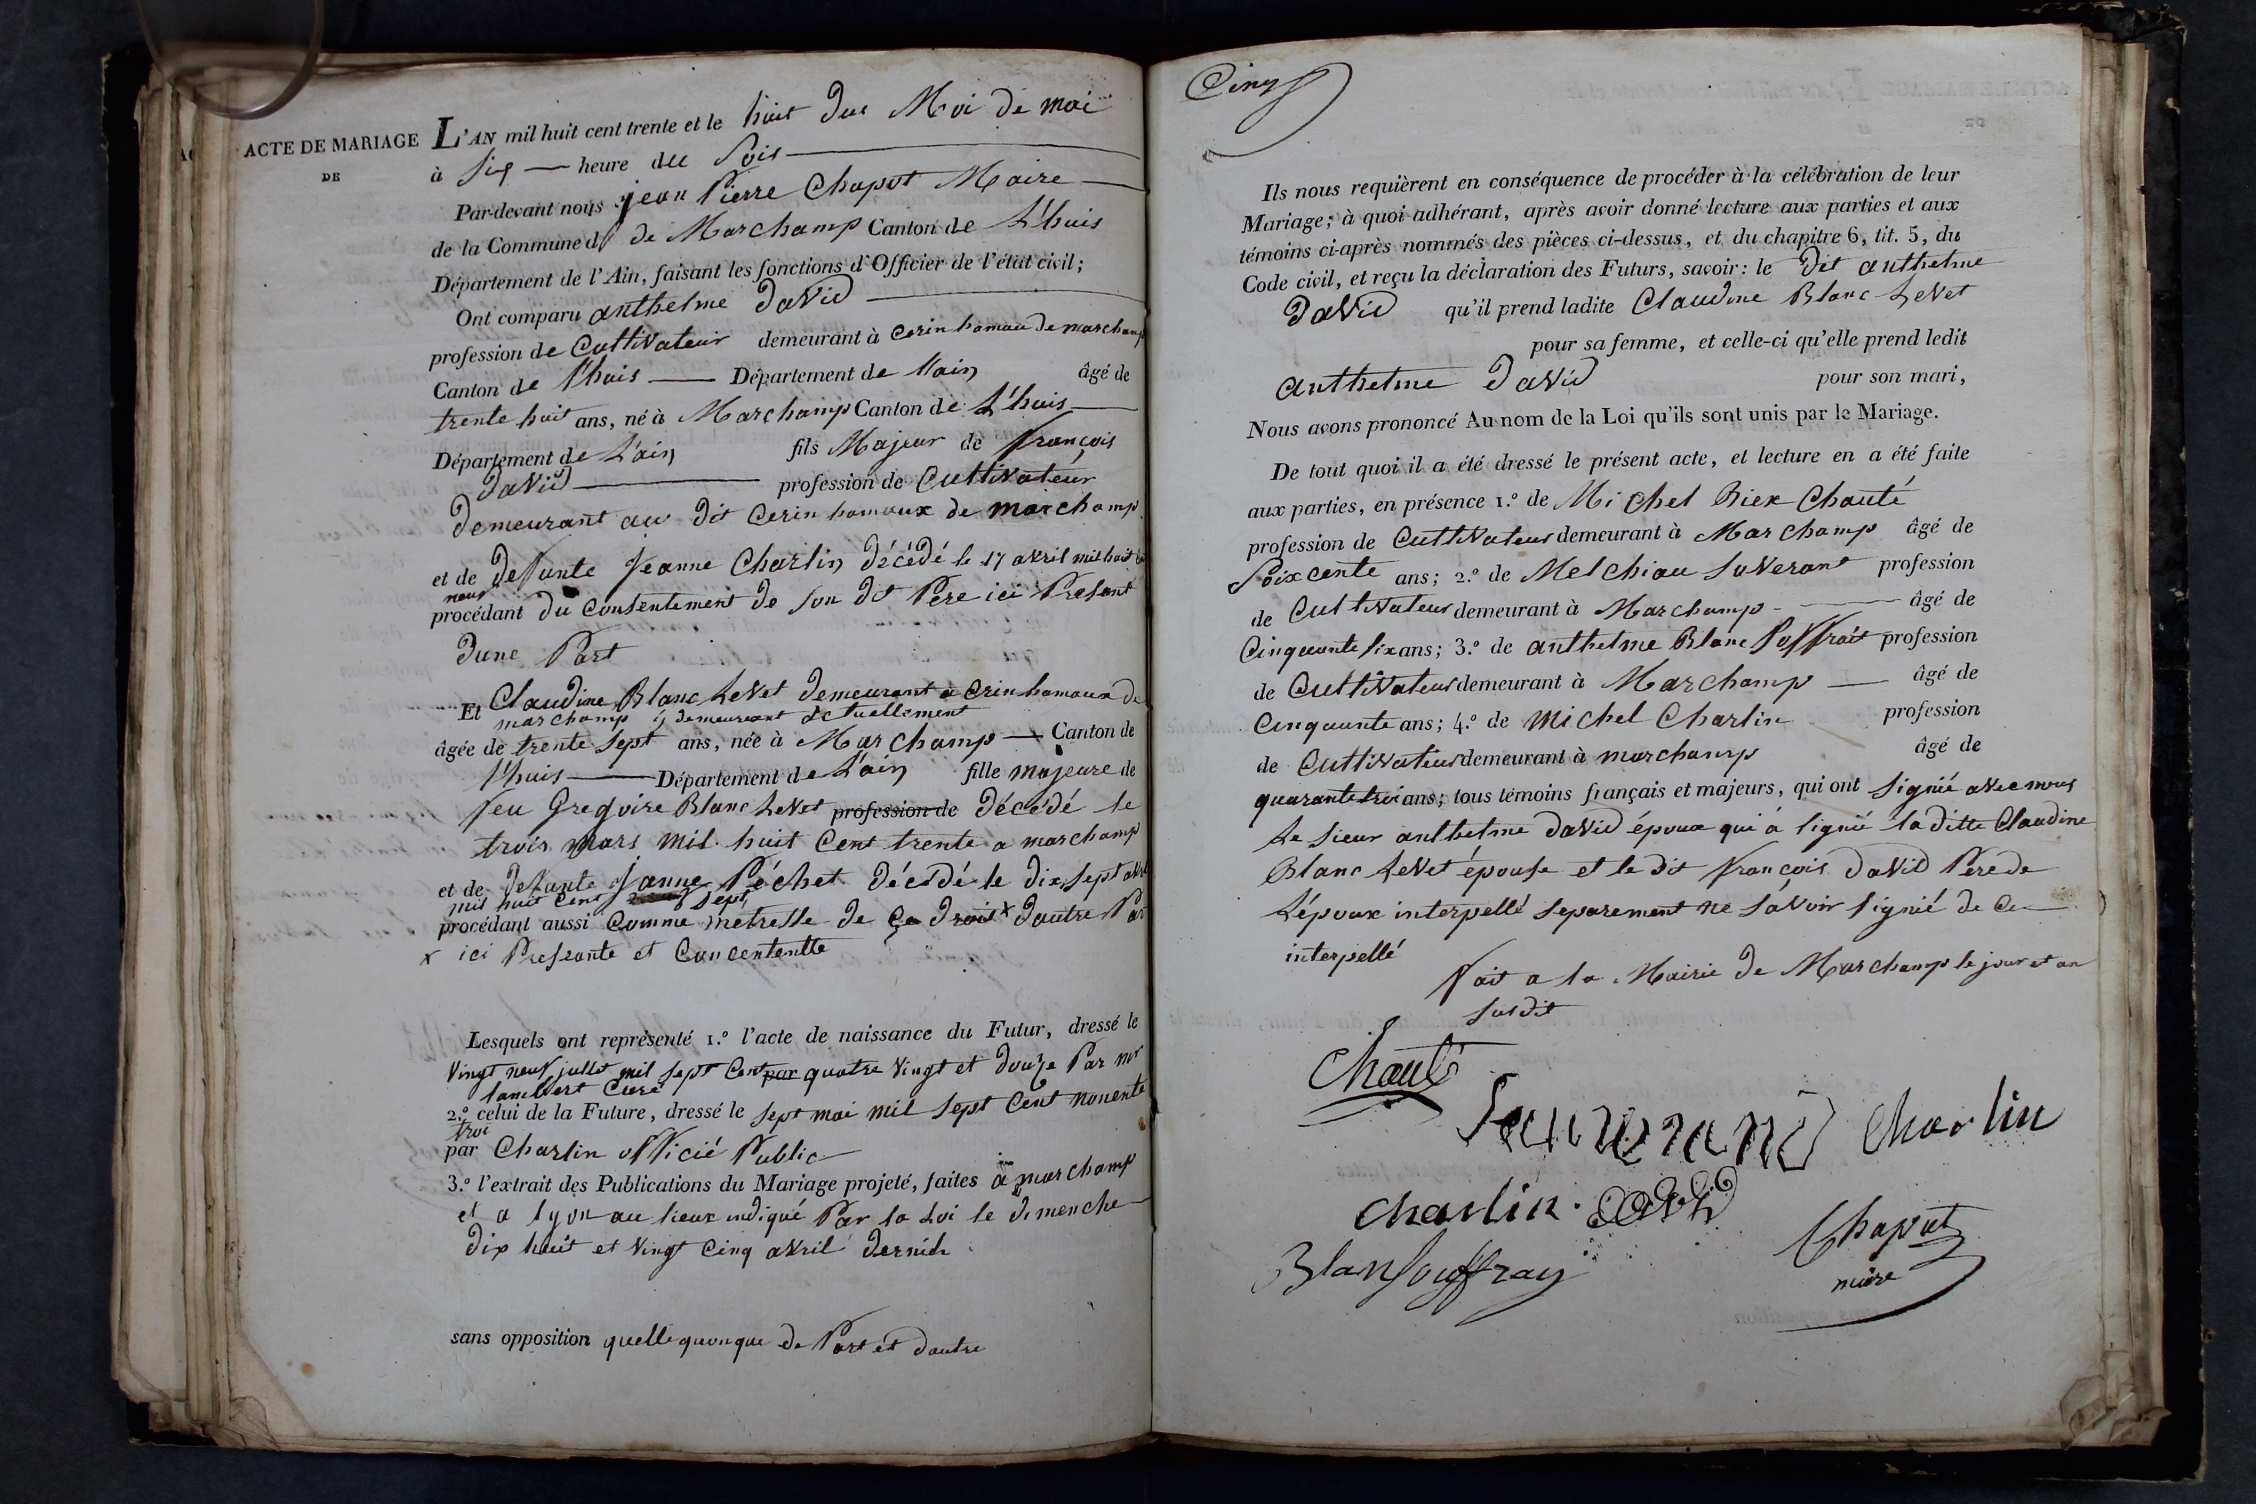 ACTE DE MARIAGE
DE
L'AN mil huit cent trente et le huit du Moi de mai
à Six heure du Soir
Par-devant nous jean Pierre Chapot Maire
de la Commune d de Marchamp Canton de L'huis
Département de l'Ain, faisant les fonctions d'Officier de l'état civil;
Ont comparu anthelme David
profession de Cultivateur demeurant à Cerin hamau de marchamp
Canton de l'huis Département de l'ain âgé de
trente huit ans, né à Marchamp Canton de L'huis
Département de L'ain fils Majeur de françois
David profession de Cultivateur
Demeurant au dit Cerin hamaux de marchamp
et de defunte Jeanne Charlin décédé le 17 avril mil huit
neuf
procédant du Consentement de Son dit Pere ici Present
dune Part
Et Claudine Blanc Levet demeurant a Cerin hamaux de
marchamp y demeurant actuellement
âgée de trente Sept ans, née à Marchamp Canton de
l'huis Département de L'ain fille majeure de
feu Gregoire Blanc Levet profession de décédé le
trois mars mil huit Cent trente a marchamp
et de defunte Janne Péchet décédé le dix Sept
mil huit Cent Sept
procédant aussi Comme metresse de Ça droit x dautre Par
x ici Pressante et Concententte
Lesquels ont représenté 1.º l'acte de naissance du Futur, dressé le
Vingt neuf jullet mil Sept Cent par quatre Vingt et douze Par mr
lambert Curé
2.º celui de la Future, dressé le Sept mai mil Sept Cent nonente
troi
par Charlin officié Public
3.º l'extrait des Publications du Mariage projeté, faites à marchamp
et a lyon au lieux indiqué Par la Loi le dimenche
dix huit et Vingt Cinq avril dernié
sans opposition quelle quonque de Part et dautre
Cinq
Ils nous requièrent en conséquence de procéder à la célébration de leur
Mariage; à quoi adhérant, après avoir donné lecture aux parties et aux
témoins ci-après nommés des pièces ci-dessus, et du chapitre 6, tit. 5, du
Code civil, et reçu la déclaration des Futurs, savoir: le dit anthelme
David qu'il prend ladite Claudine Blanc Levet
pour sa femme, et celle-ci qu'elle prend ledit
anthelme David pour son mari,
Nous avons prononcé Au nom de la Loi qu'ils sont unis par le Mariage.
De tout quoi il a été dressé le présent acte, et lecture en a été faite
aux parties, en présence 1.º de Michel Chauté
profession de Cultivateur demeurant à Marchamp âgé de
Soixcente ans; 2.º de Melchiau Saverant profession
de Cultivateur demeurant à Marchamp âgé de
Cinquante Six ans; 3.º de anthelme Blanc profession
de Cultivateur demeurant à Marchamp âgé de
Cinquante ans; 4.º de Michel Charlin profession
de Cultivateur demeurant à marchamp âgé de
quarante troi ans; tous témoins français et majeurs, qui ont Signié avec nous
Le Sieur anthelme David époux qui a Signié la ditte Claudine
Blanc Levet épouse et le dit françois David Pere de
L'époux interpellé Separement ne Savoir Signié de Ce
interpellé
fait a la Mairie de Marchamp le jour et an
Susdit
Chauté
Sauverand Charlin
Charlin. David
Chaput
Blansouffray
maire